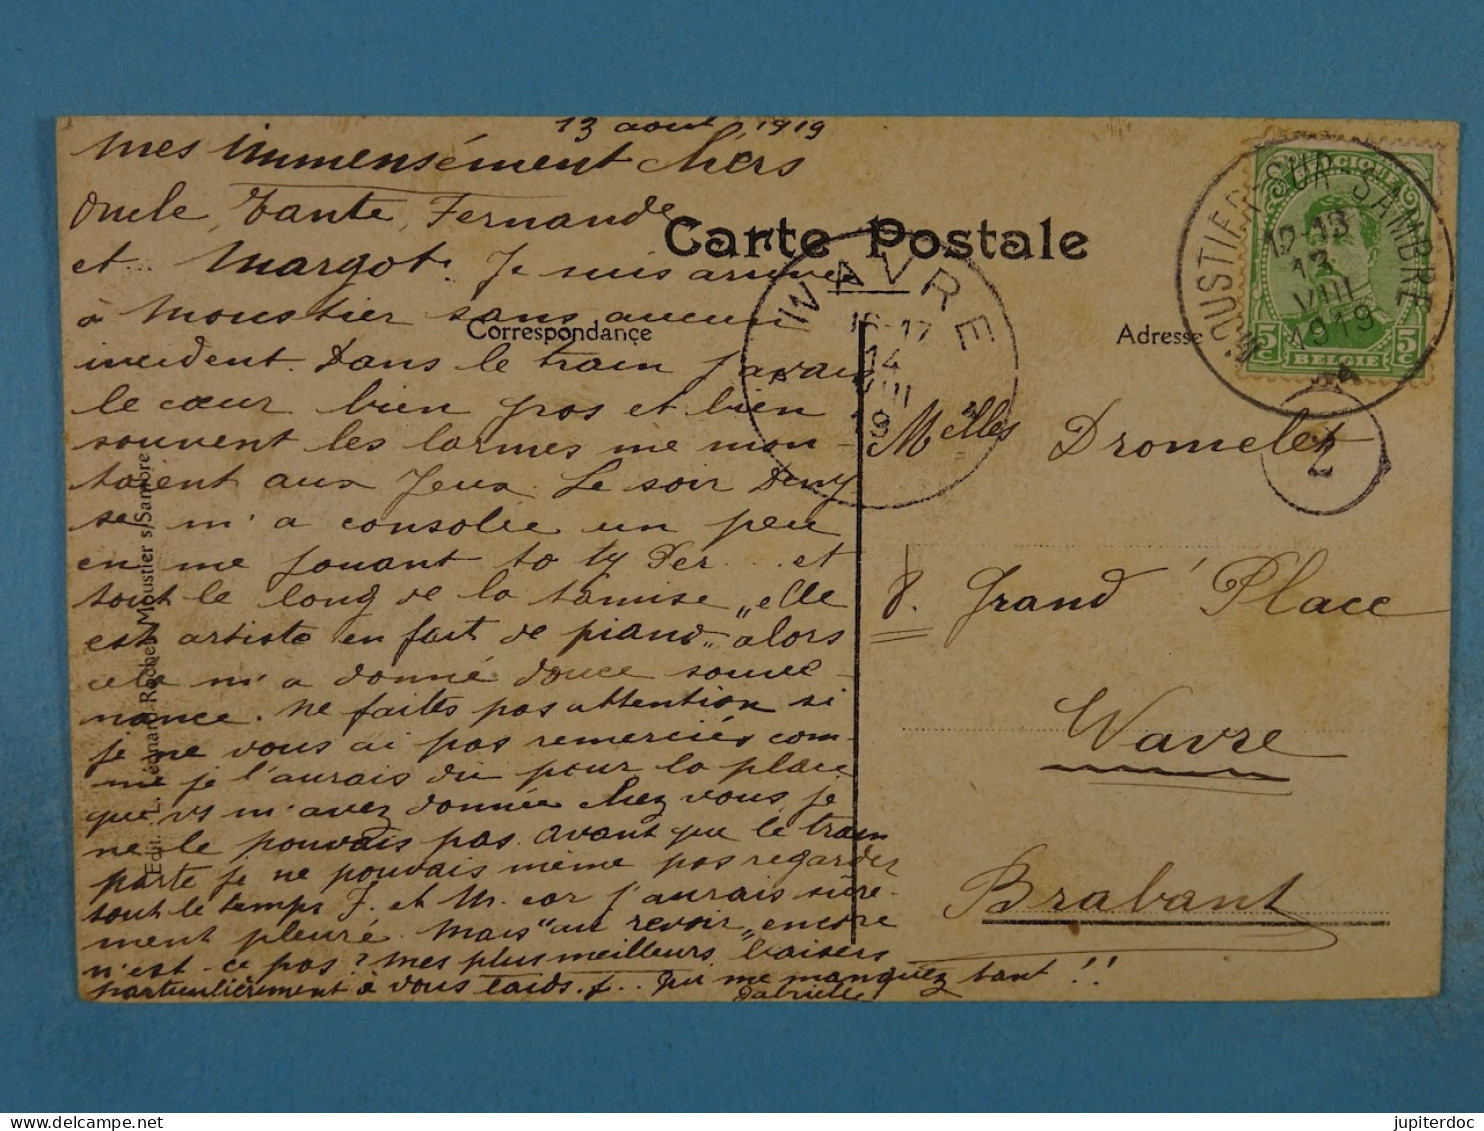 13 aout 1919
Mes immensément chers
Oncle, Tante, Fernande
et... Margot. Je suis arrivée
à Moustier sans aucun
incident. Dans le train j'avais
le cœur bien gros et bien
souvent les larmes me mon-
taient aux yeux. Le soir Deny
se m'a consolée un peu
en me jouant to ty Per... et
tout le long de la tamise "elle
est artiste en fait de piano" alors
cela m'a donné douce souve-
nance. Ne faites pas attention si
je ne vous ai pas remerciés com-
me je l'aurais dû pour la place
que vs m'avez donnée chez vous, je
ne le pouvais pas. Avant que le train
parte je ne pouvais même pas regarder
tout le temps F. et M. car j'aurais sûre-
ment pleuré. Mais "au revoir" encore
n'est-ce pas? Mes plus meilleurs baisers
particulièrement à vous
qui me manquez tant !!
Gabrielle
Carte Postale
Correspondance
Adresse
Edit. : L. Léonard-Rochet, Moustier s/Sambre
WAVRE
16-17
14
VIII
19
MOUSTIER-SUR-SAMBRE
12-13
13
VIII
1919
BELGIQUE
5c 5c
BELGIE
2
Melles Dromelet
8. Grand'Place
Wavre
Brabant
delcampe.net
jupiterdoc